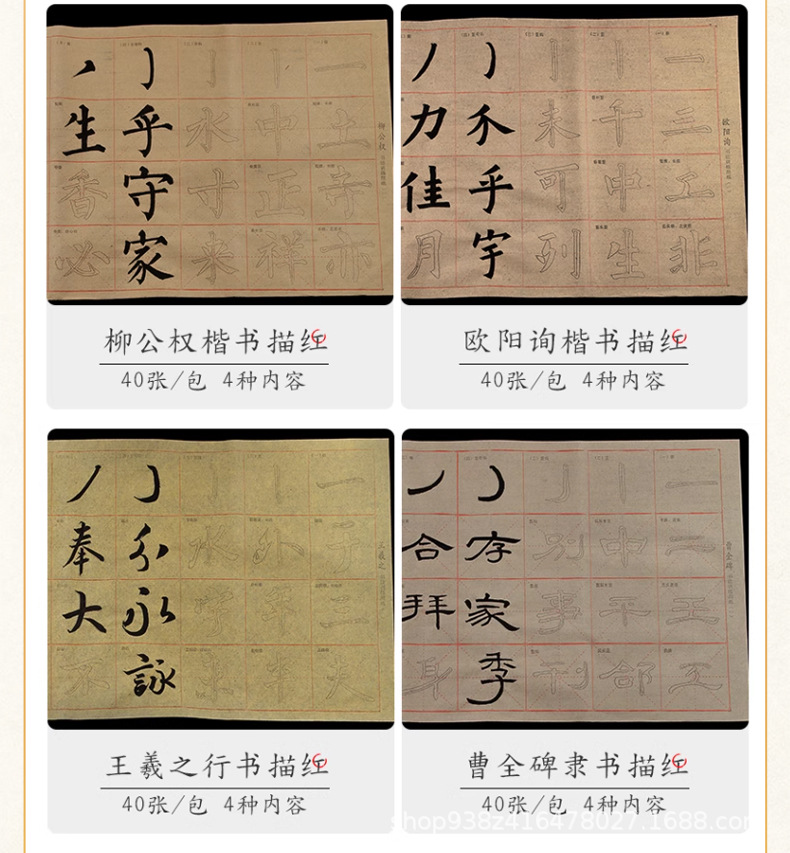 生 乎 水 中 土
香 守 寸 正 寺
必 家 来 祥 亦
柳公权
柳公权楷书描红
40张/包 4种内容
力 禾 未 千 三
佳 乎 可 中 工
月 宇 列 生 非
欧阳询
欧阳询楷书描红
40张/包 4种内容
奉 分 水 外 于
大 永 年 三
不 詠 大
王羲之
王羲之行书描红
40张/包 4种内容
合 存 别 中 二
拜 家 事 平 王
身 季 刊 郃 工
曹全碑
曹全碑隶书描红
40张/包 4种内容
shop938z416478027.1688.com